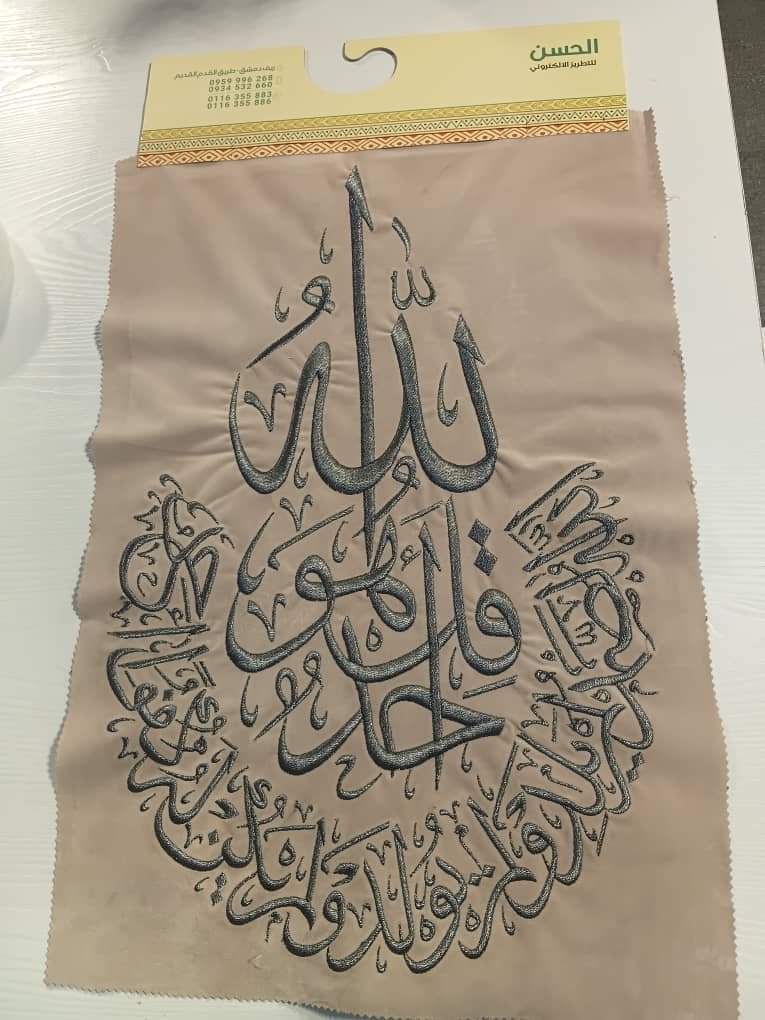 الحسن
للتطريز الالكتروني
ريف دمشق - طريق القدم القديم
0959 996 268
0934 532 660
0116 355 883
0116 355 886
قُلْ هُوَ اللّٰهُ أَحَدٌ
اللّٰهُ الصَّمَدُ لَمْ يَلِدْ وَلَمْ يُولَدْ وَلَمْ يَكُنْ لَهُ كُفُوًا أَحَدٌ